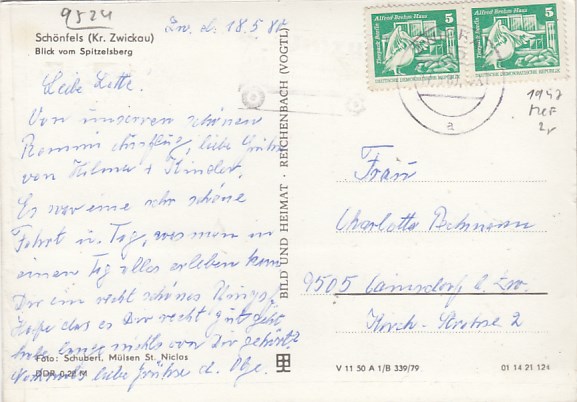 9524
Schönfels (Kr. Zwickau)
Blick vom Spitzelsberg
Zw. d. 18.5.80
Liebe Lotte.
Von unserem schönen
liebe Grüße
von Hilmar + Kinder.
Es war eine sehr schöne
Fahrt in Tag, was man in
einen Tag alles erleben kann
Dir ein recht schönes
Hoffe das es Dir recht gut geht
habe lange nichts von Dir gehört
Nochmals liebe Grüße d. Obge.
Foto: Schubert, Mülsen St. Niclas
DDR 0,20 M
BILD UND HEIMAT · REICHENBACH (VOGTL)
Alfred Brehm Haus
5
Tierpark Berlin
DEUTSCHE DEMOKRATISCHE REPUBLIK
Alfred Brehm Haus
5
Tierpark Berlin
DEUTSCHE DEMOKRATISCHE REPUBLIK
a
1947
MeF
2,-
Fräu
Charlotte
9505 Cainsdorf b. Zw.
Kirch-Strasse 2
V 11 50 A 1/B 339/79
01 14 21 124